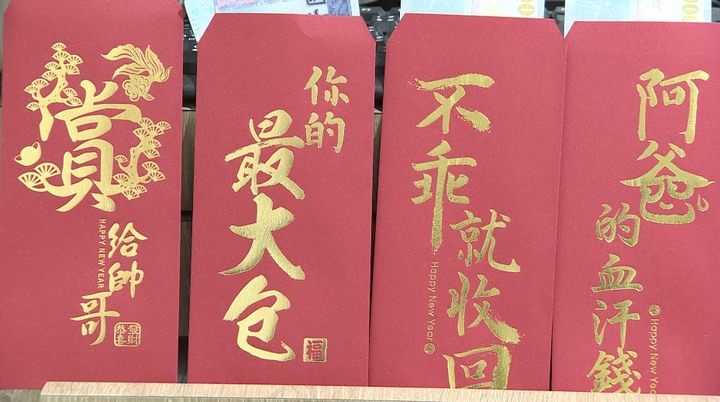 賞
給帥哥
HAPPY NEW YEAR
恭喜發財
你的
最大包
福
不乖
就收回
Happy New Year
阿爸
的血汗錢
Happy New Year